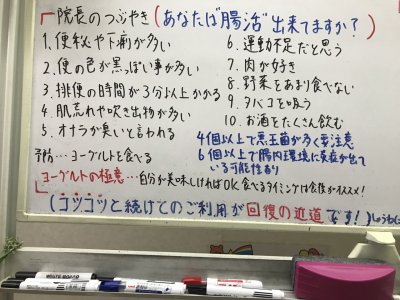 「院長のつぶやき(あなたは"腸活"出来てますか?)
1. 便秘や下痢が多い
2. 便の色が黒っぽい事が多い
3. 排便の時間が3分以上かかる
4. 肌荒れや吹き出物が多い
5. オナラが臭いと言われる
6. 運動不足だと思う
7. 肉が好き
8. 野菜をあまり食べない
9. タバコを吸う
10. お酒をたくさん飲む
4個以上で悪玉菌が多く要注意
6個以上で腸内環境に異変が出ている可能性あり
予防…ヨーグルトを食べる
ヨーグルトの極意…自分が美味しければOK 食べるタイミングは食後がオススメ!
(コツコツと続けてのご利用が回復の近道です!)
WHITE BOARD